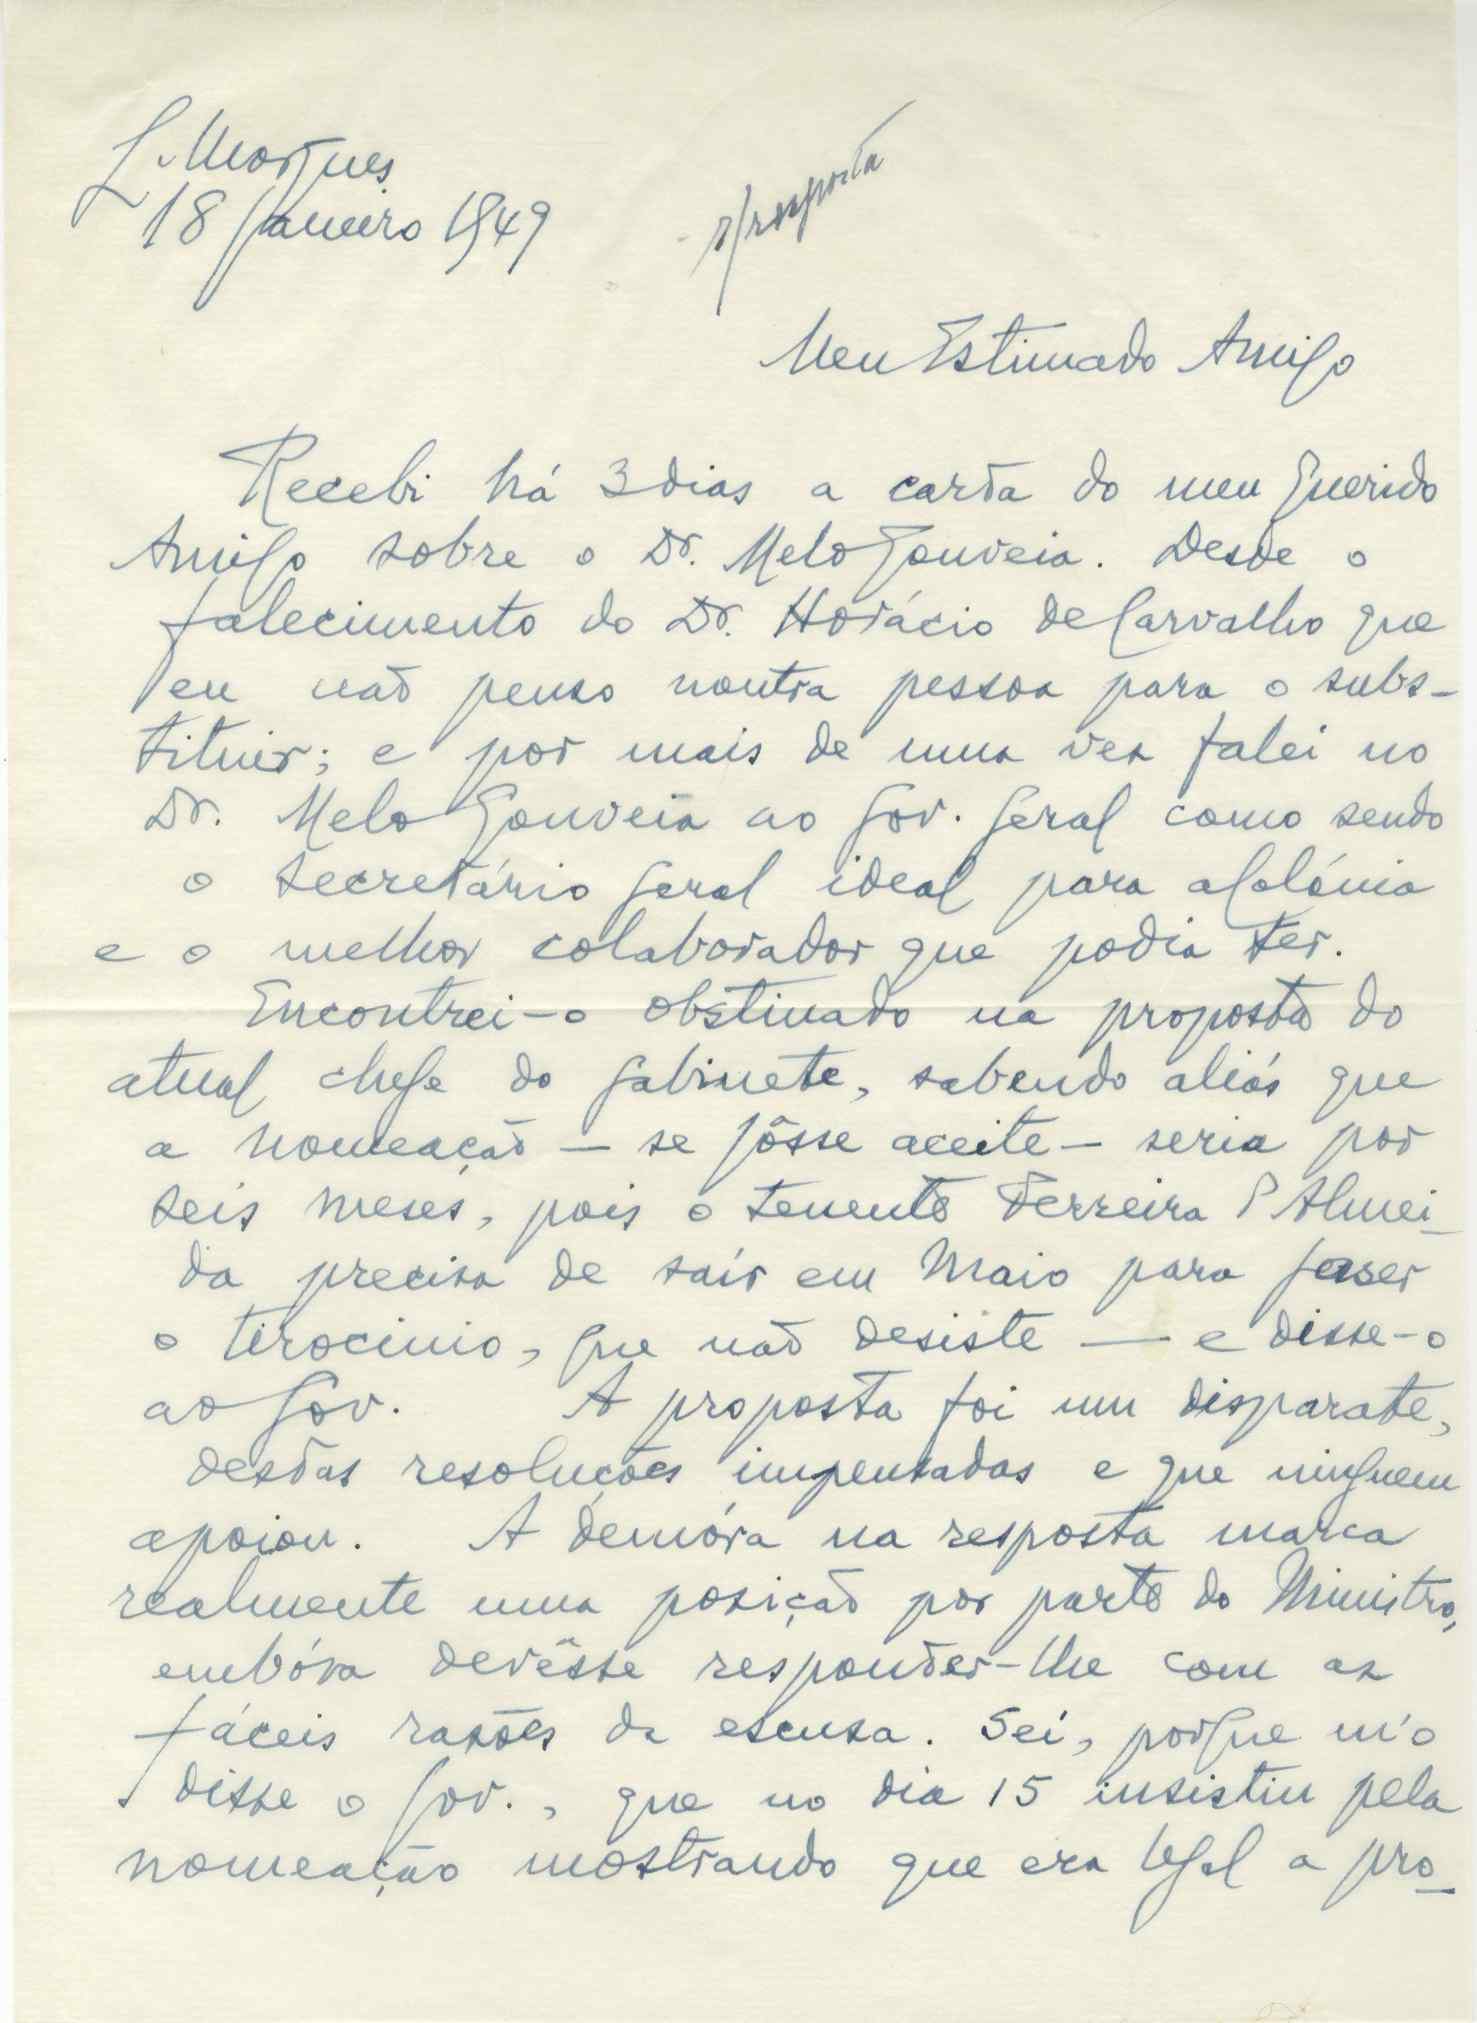 L. Marques
18 Janeiro 1949
s/resposta
Meu Estimado Amigo
Recebi há 3 dias a carta do meu querido
Amigo sobre o Dr. Melo Gouveia. Desde o
falecimento do Dr. Horácio de Carvalho que
eu não penso noutra pessoa para o subs-
tituir; e por mais de uma vez falei no
Dr. Melo Gouveia ao Gov. Geral como sendo
o Secretário Geral ideal para a Colónia
e o melhor colaborador que podia ter.
Encontrei-o obstinado na proposta do
atual chefe do gabinete, sabendo aliás que
a nomeação — se fôsse aceite — seria por
seis meses, pois o tenente Ferreira d'Almei-
da precisa de saír em Maio para faser
o tirocinio, que não desiste — e disse-o
ao Gov. A proposta foi um disparate,
destas resoluções impensadas e que ninguem
apoiou. A demóra na resposta marca
realmente uma posição por parte do Ministro,
embóra devêsse responder-lhe com as
fáceis rasões da escusa. Sei, porque m'o
disse o Gov., que no dia 15 insistiu pela
nomeação mostrando que era legal a pro-